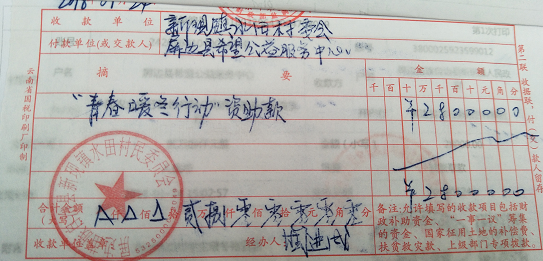 2018.01.24
收款单位 新现镇水田村委会
付款单位(或交款人) 屏边县希望公益服务中心
摘 要
金 额
千 百 十 万 千 百 十 元 角 分
"青春暖冬行动"资助款
¥2800000
¥2800000
合计金额(大写) 仟 佰 拾 贰万捌仟零佰零拾零元零角零分
备注:允许填写的收款项目包括财
政补助资金、"一事一议"筹集
的资金、国家征用土地的补偿费、
扶贫救灾款、上级部门专项拨款。
收款单位盖章
经办人
新现镇水田村民委员会
云南省国税印刷厂印制
第二联 收据联,付(交)款人留存